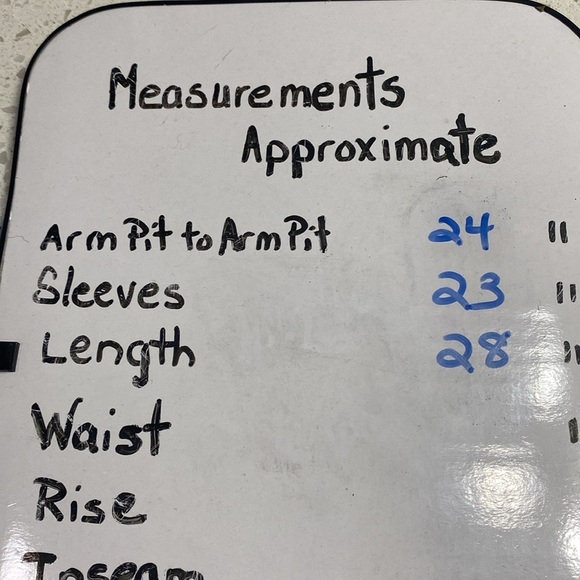 Measurements
Approximate
Arm Pit to Arm Pit 24 "
Sleeves 23 "
Length 28 "
Waist
Rise
Inseam